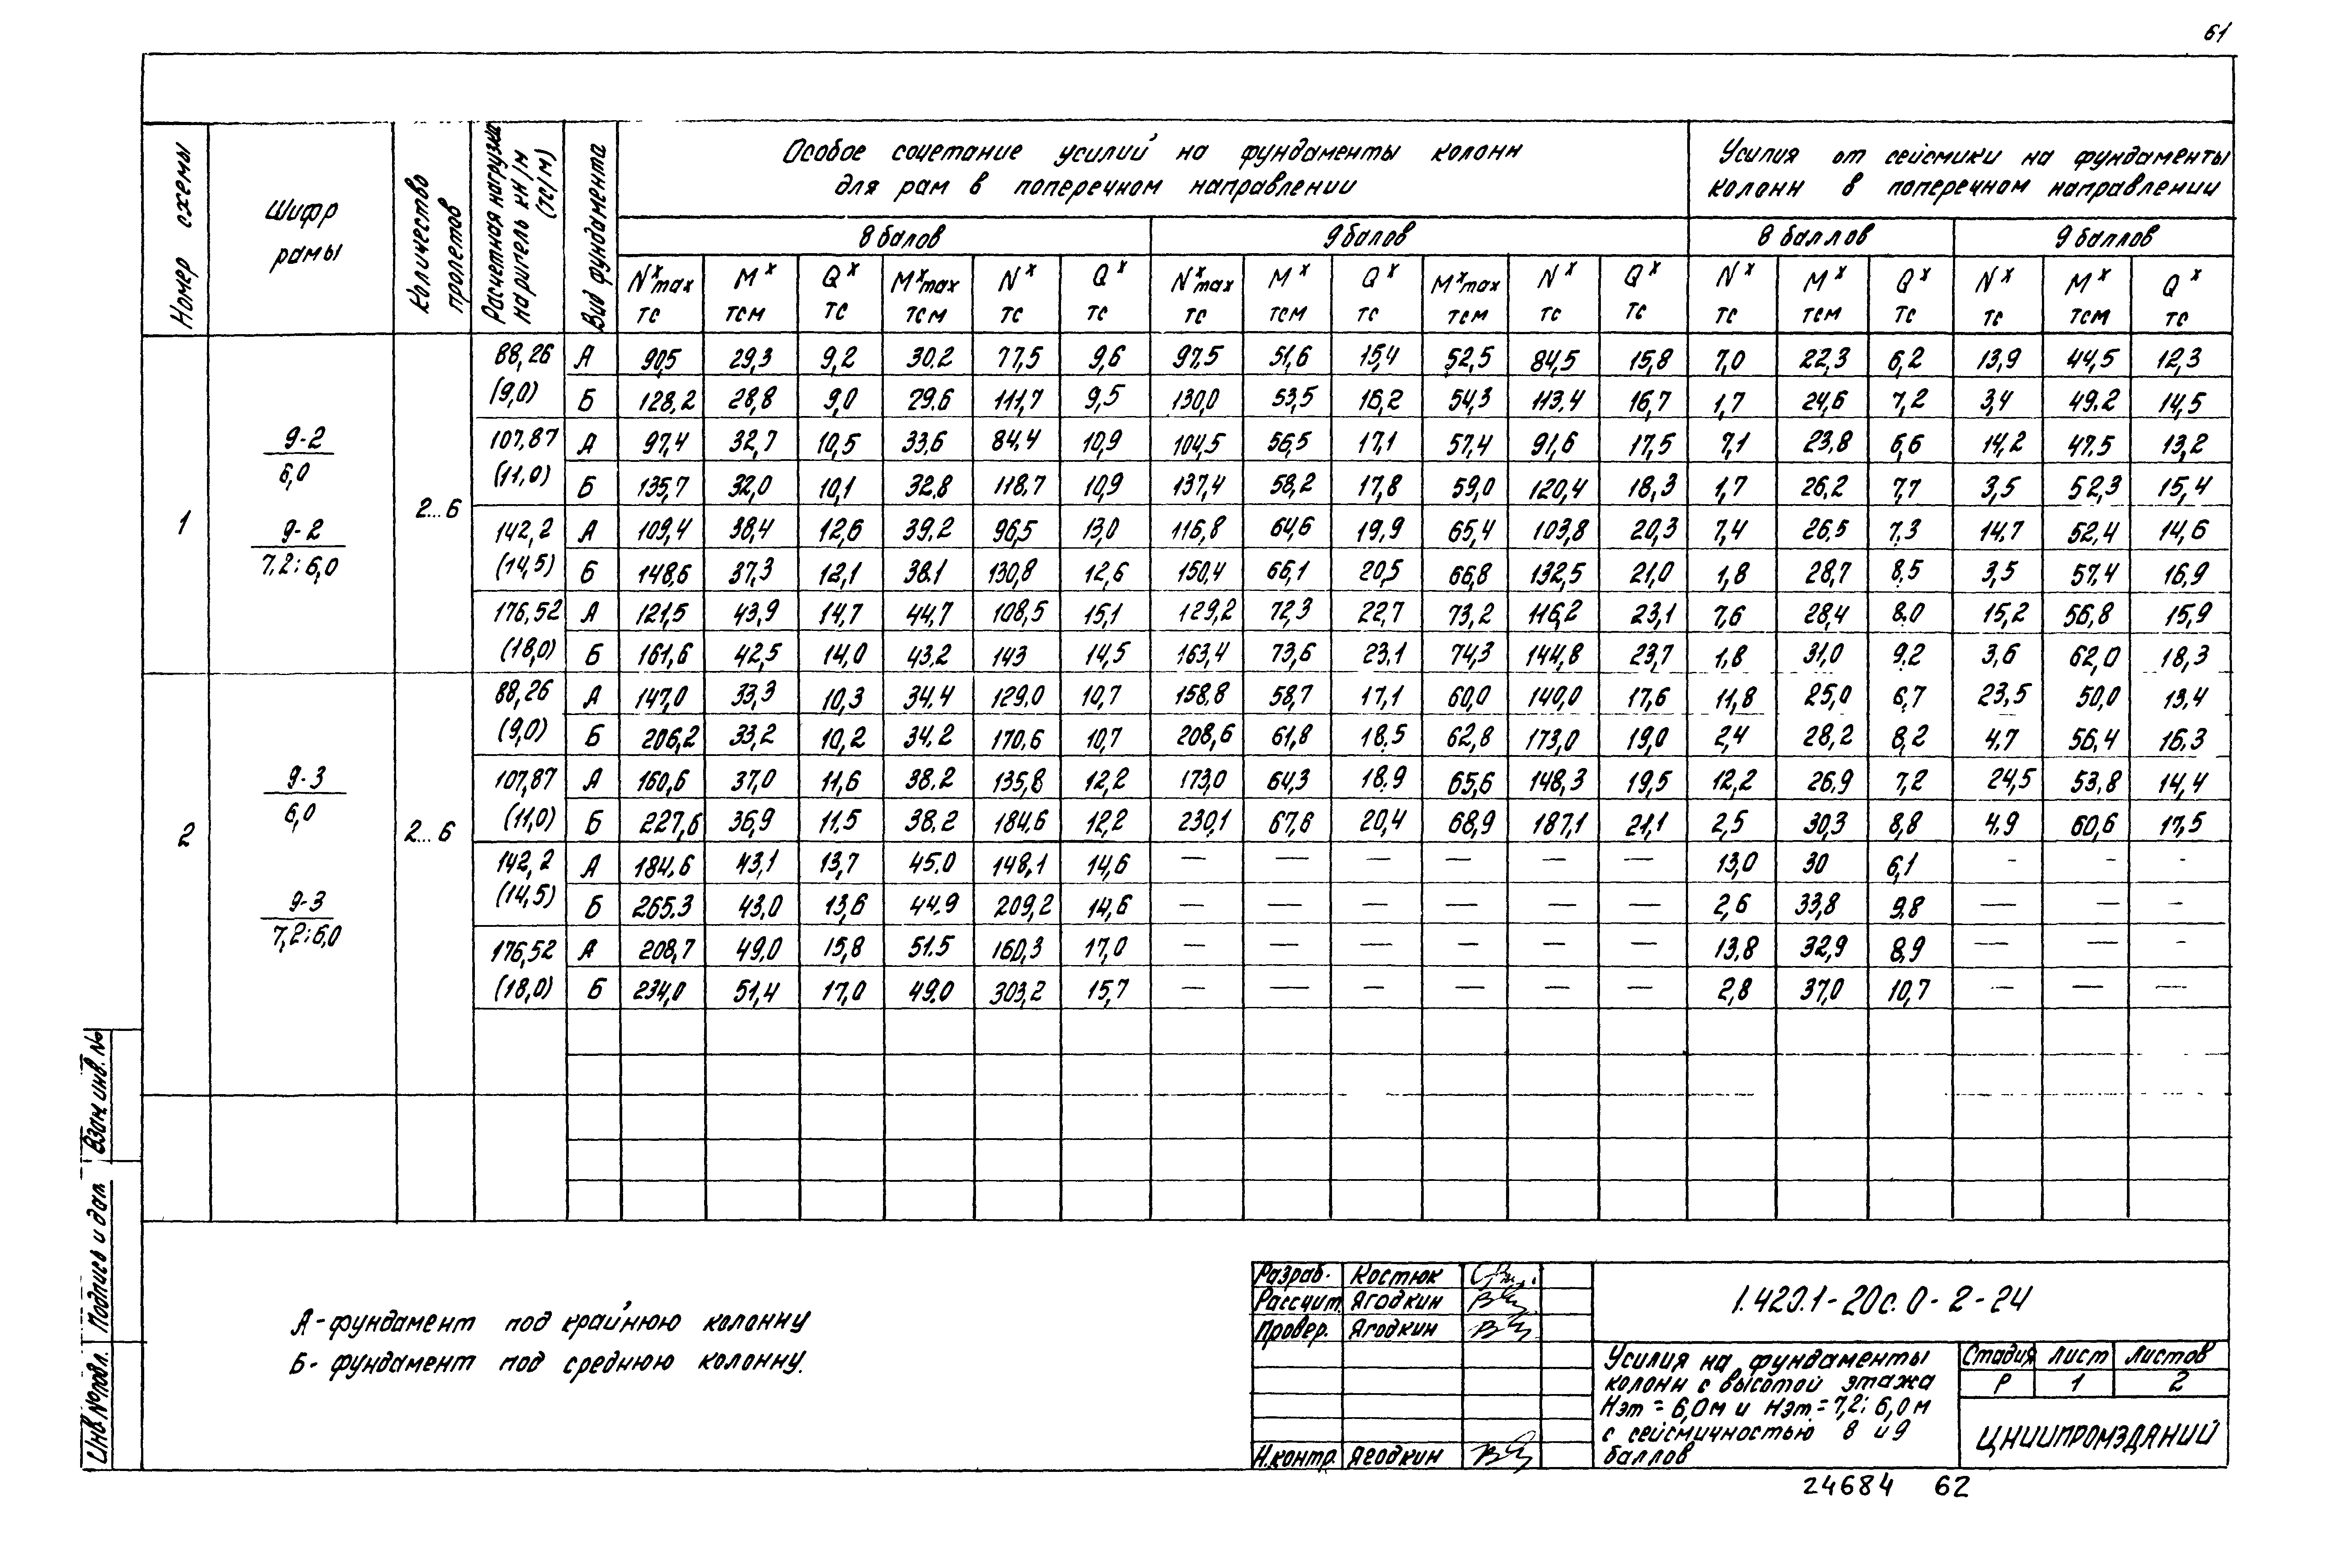 61
Номер схемы
Шифр рамы
Количество пролетов
Расчетная нагрузка на ригель кН/м (тс/м)
Вид фундамента
Особое сочетание усилий на фундаменты колонн
для рам в поперечном направлении
Усилия от сейсмики на фундаменты
колонн в поперечном направлении
8 балов 9 балов 8 баллов 9 баллов
Nˣmax тс Mˣ тсм Qˣ тс Mˣmax тсм Nˣ тс Qˣ тс Nˣmax тс Mˣ тсм Qˣ тс Mˣmax тсм Nˣ тс Qˣ тс Nˣ тс Mˣ тсм Qˣ тс Nˣ тс Mˣ тсм Qˣ тс
1
9-2
6,0
9-2
7,2; 6,0
2...6
88,26 А 90,5 29,3 9,2 30.2 77,5 9,6 97.5 51,6 15,4 52,5 84,5 15,8 7,0 22,3 6,2 13,9 44,5 12,3
(9,0) Б 128,2 28,8 9,0 29.6 111,7 9,5 130,0 53,5 16,2 54,3 113.4 16,7 1,7 24,6 7,2 3,4 49.2 14,5
107,87 А 97,4 32,7 10,5 33,6 84.4 10,9 104,5 56,5 17,1 57,4 91,6 17,5 7,1 23,8 6,6 14,2 47.5 13,2
(11,0) Б 135,7 32,0 10,1 32.8 118.7 10,9 137,4 58,2 17,8 59,0 120,4 18,3 1,7 26,2 7,7 3,5 52,3 15,4
142,2 А 109,4 38,4 12,6 39.2 96,5 13,0 116,8 64,6 19,9 65,4 103,8 20,3 7,4 26,5 7.3 14.7 52,4 14,6
(14,5) Б 148,6 37,3 12,1 38.1 130,8 12,6 150,4 66,1 20,5 66,8 132,5 21,0 1,8 28,7 8.5 3,5 57.4 16,9
176,52 А 121,5 43,9 14,7 44,7 108,5 15,1 129,2 72,3 22,7 73,2 116,2 23,1 7,6 28,4 8.0 15,2 56,8 15,9
(18,0) Б 161,6 42,5 14,0 43.2 143 14,5 163,4 73,6 23,1 74,3 144,8 23,7 1,8 31,0 9.2 3,6 62,0 18,3
2
9-3
6,0
9-3
7,2; 6,0
2...6
88,26 А 147,0 33,3 10,3 34.4 129.0 10,7 158,8 58,7 17,1 60,0 140,0 17,6 11,8 25,0 6,7 23,5 50,0 13,4
(9,0) Б 206,2 33,2 10,2 34.2 170.6 10,7 208,6 61,8 18,5 62,8 173,0 19,0 2,4 28,2 8,2 4.7 56,4 16.3
107,87 А 160,6 37,0 11,6 38.2 135,8 12,2 173,0 64,3 18,9 65,6 148,3 19,5 12,2 26,9 7,2 24,5 53,8 14,4
(11,0) Б 227,6 36,9 11,5 38.2 184.6 12,2 230,1 67,6 20,4 68,9 187,1 21,1 2,5 30,3 8,8 4.9 60,6 17,5
142,2 А 184.6 43,1 13,7 45.0 148,1 14,6 — — — — — — 13,0 30 6,1 - - -
(14,5) Б 265.3 43,0 13,6 44.9 209,2 14,6 — — — — — — 2,6 33,8 9,8 — — -
176,52 А 208,7 49,0 15,8 51.5 160,3 17,0 — — — — — — 13,8 32,9 8,9 — — -
(18,0) Б 234,0 51,4 17,0 49.0 303,2 15,7 — — — — — — 2,8 37,0 10,7 — — —
А - фундамент под крайнюю колонну
Б - фундамент под среднюю колонну.
Взам. инв. №
Подпись и дата
Инв. № подл.
Разраб. Костюк
Рассчит. Ягодкин
Провер. Ягодкин
Н.контр. Ягодкин
1.420.1-20с.0-2-24
Усилия на фундаменты
колонн с высотой этажа
Нэт = 6,0м и Нэт.= 7,2; 6,0м
с сейсмичностью 8 и 9
баллов
Стадия Лист Листов
Р 1 2
ЦНИИПРОМЗДАНИЙ
24684 62